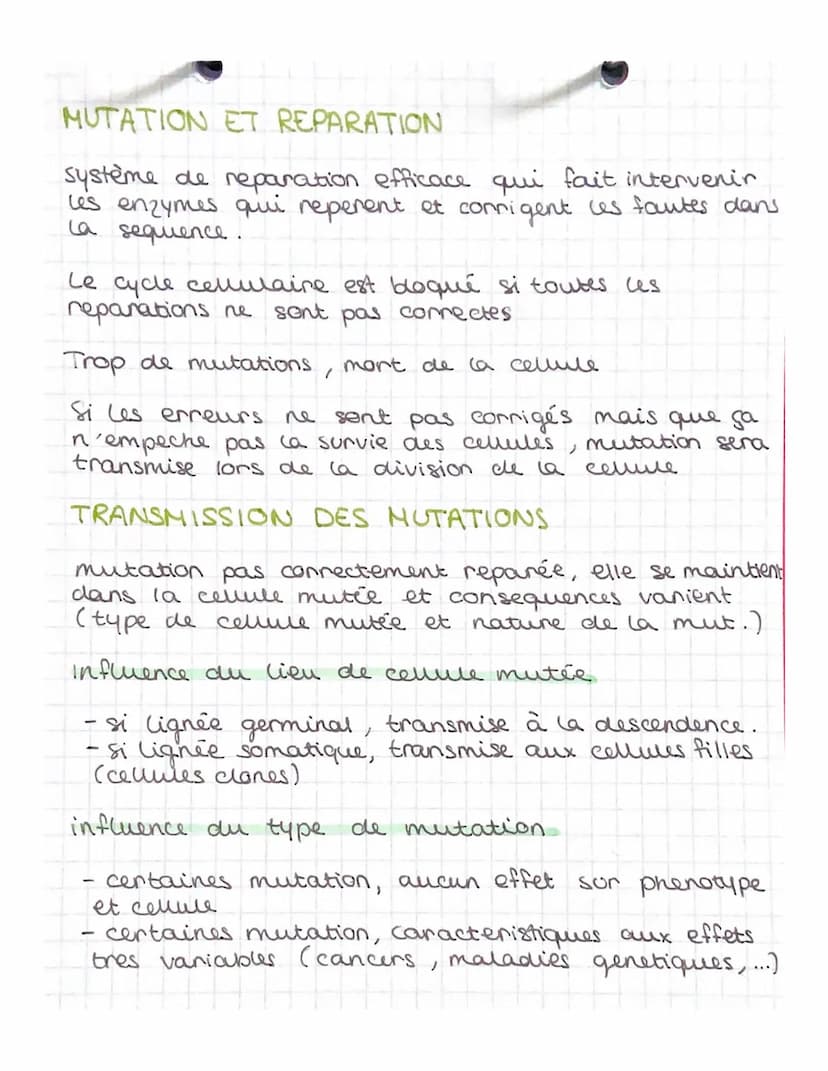 MUTATION ET REPARATION
système de reparation efficace qui fait intervenir
les enzymes qui reperent et corrigent les fautes dans
la sequence.
Le cycle cellulaire est bloqué si toutes les
reparations ne sont pas correctes
Trop de mutations, mort de la cellule
Si les erreurs ne sont pas corrigés mais que ça
n'empeche pas la survie des cellules, mutation sera
transmise lors de la division de la cellule
TRANSMISSION DES MUTATIONS
mutation pas correctement reparée, elle se maintient
dans la cellule mutée et consequences varient
(type de cellule mutée et nature de la mut.)
influence du lieu de cellule mutée
- si lignée germinal, transmise à la descendence.
- si lignée somatique, transmise aux cellules filles
(cellules clones)
influence du type de mutation
- certaines mutation, aucun effet sur phenotype
et cellule
- certaines mutation, caracteristiques aux effets
tres variables (cancers, maladies genetiques,...)